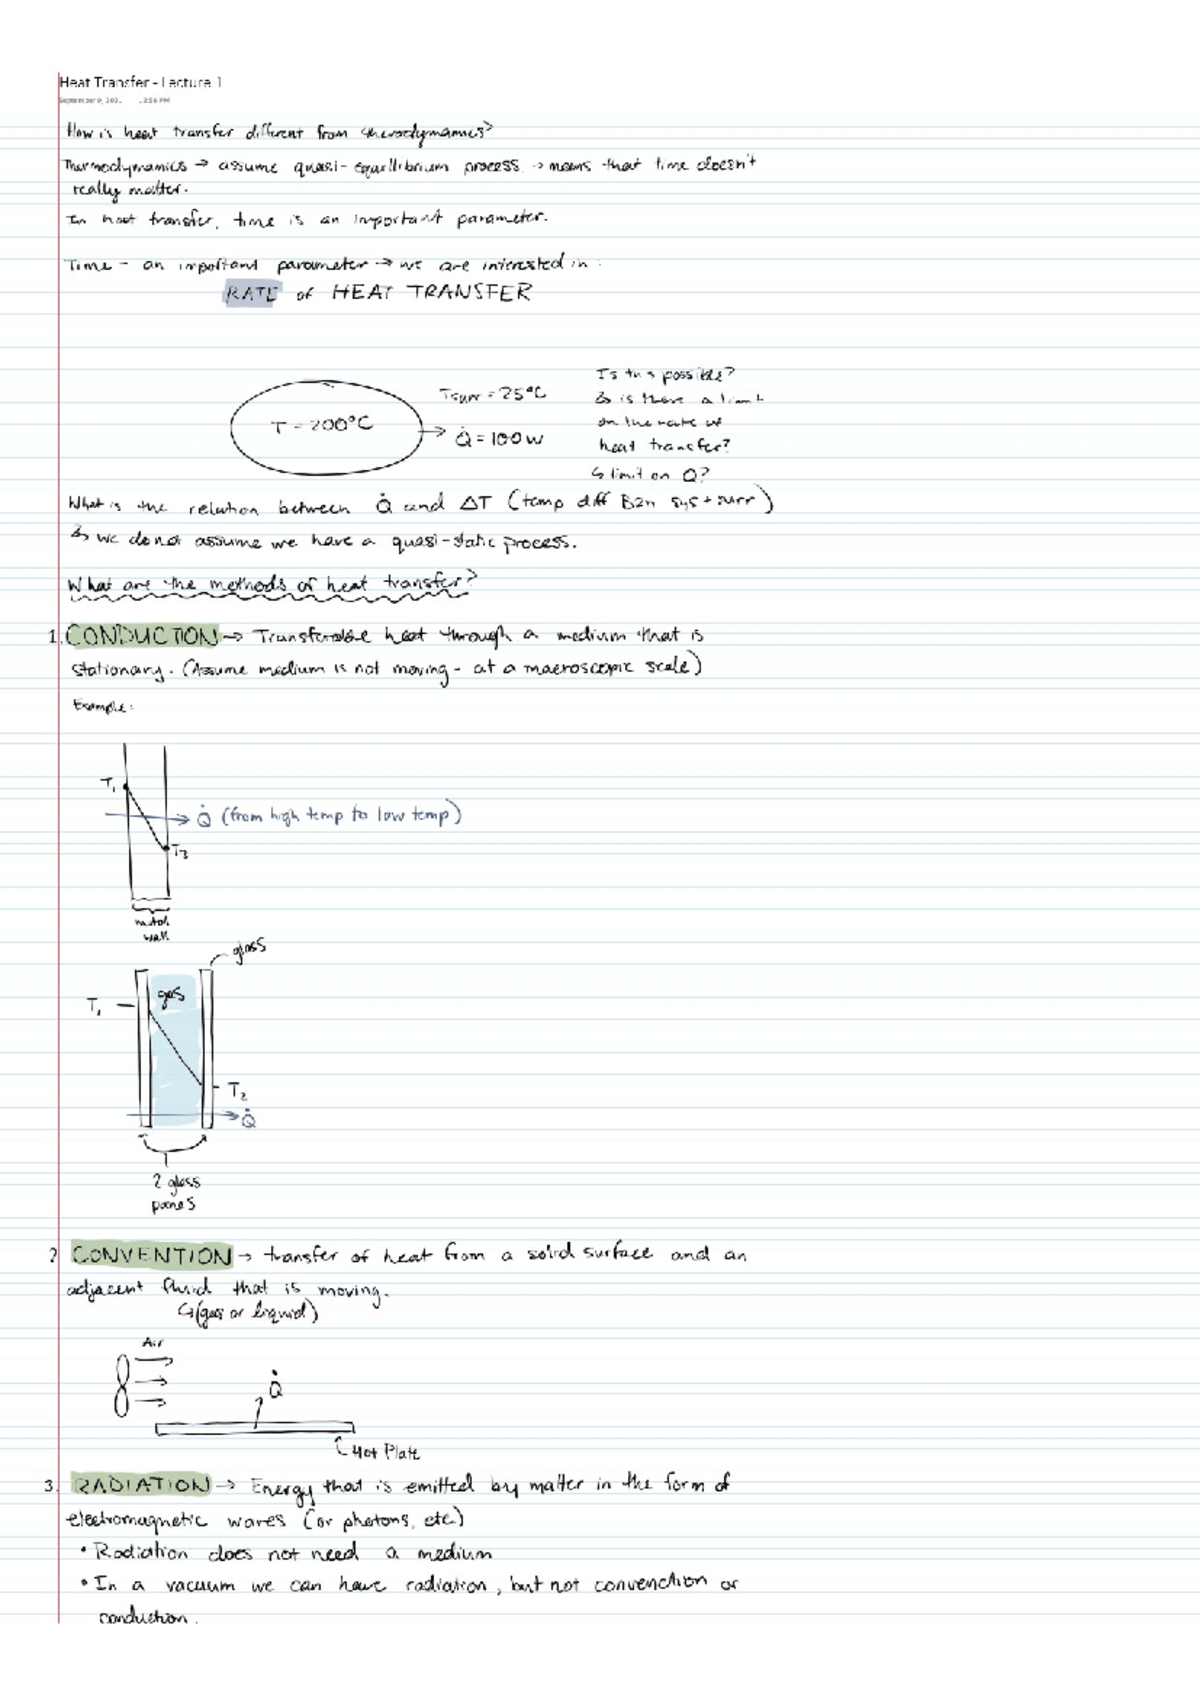 Heat Transfer - Lecture 1
September 9, 202 :56 PM
How is heat transfer different from
Thermodynamics → assume quasi-equillibrium process → means that time doesn't
really matter.
In heat transfer, time is an important parameter.
Time - an important parameter → we are interested in:
RATE of HEAT TRANSFER
T = 200°C
Tsurr = 25°C
Q̇ = 100W
Is this possible?
↳ is there a limit
on the rate of
heat transfer?
↳ limit on Q?
What is the relation between Q̇ and ΔT (temp diff B2n sys + surr)
↳ we do not assume we have a quasi-static process.
What are the methods of heat transfer?
1. CONDUCTION → heat through a medium that is
stationary. (Assume medium is not moving - at a macroscopic scale)
Example:
T₁
Q̇ (from high temp to low temp)
T₂
metal
wall
glass
gas
T₁
T₂
Q̇
2 glass
panes
2 CONVENTION → transfer of heat from a solid surface and an
adjacent fluid that is moving.
↳(gas or liquid)
Air
Q̇
Hot Plate
3. RADIATION → Energy that is emitted by matter in the form of
electromagnetic waves (or photons, etc.)
• Radiation does not need a medium
• In a vacuum we can have radiation, but not convenction or
conduction.